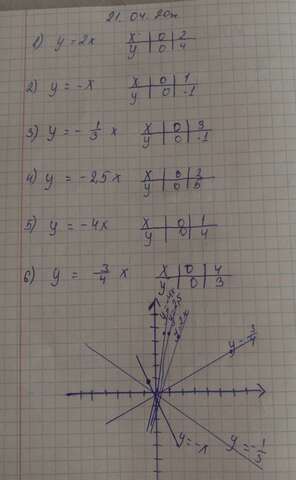 21.04.20
1) y = 2x x 0 2
y 0 4
2) y = -x x 0 1
y 0 -1
3) y = - 1/3 x x 0 3
y 0 -1
4) y = -25x x 0 2
y 0 5
5) y = -4x x 0 1
y 0 4
6) y = 3/4 x x 0 4
y 0 3
y=-4x
y=25
y=2x
y=3/4
y=-x
y=-1/3